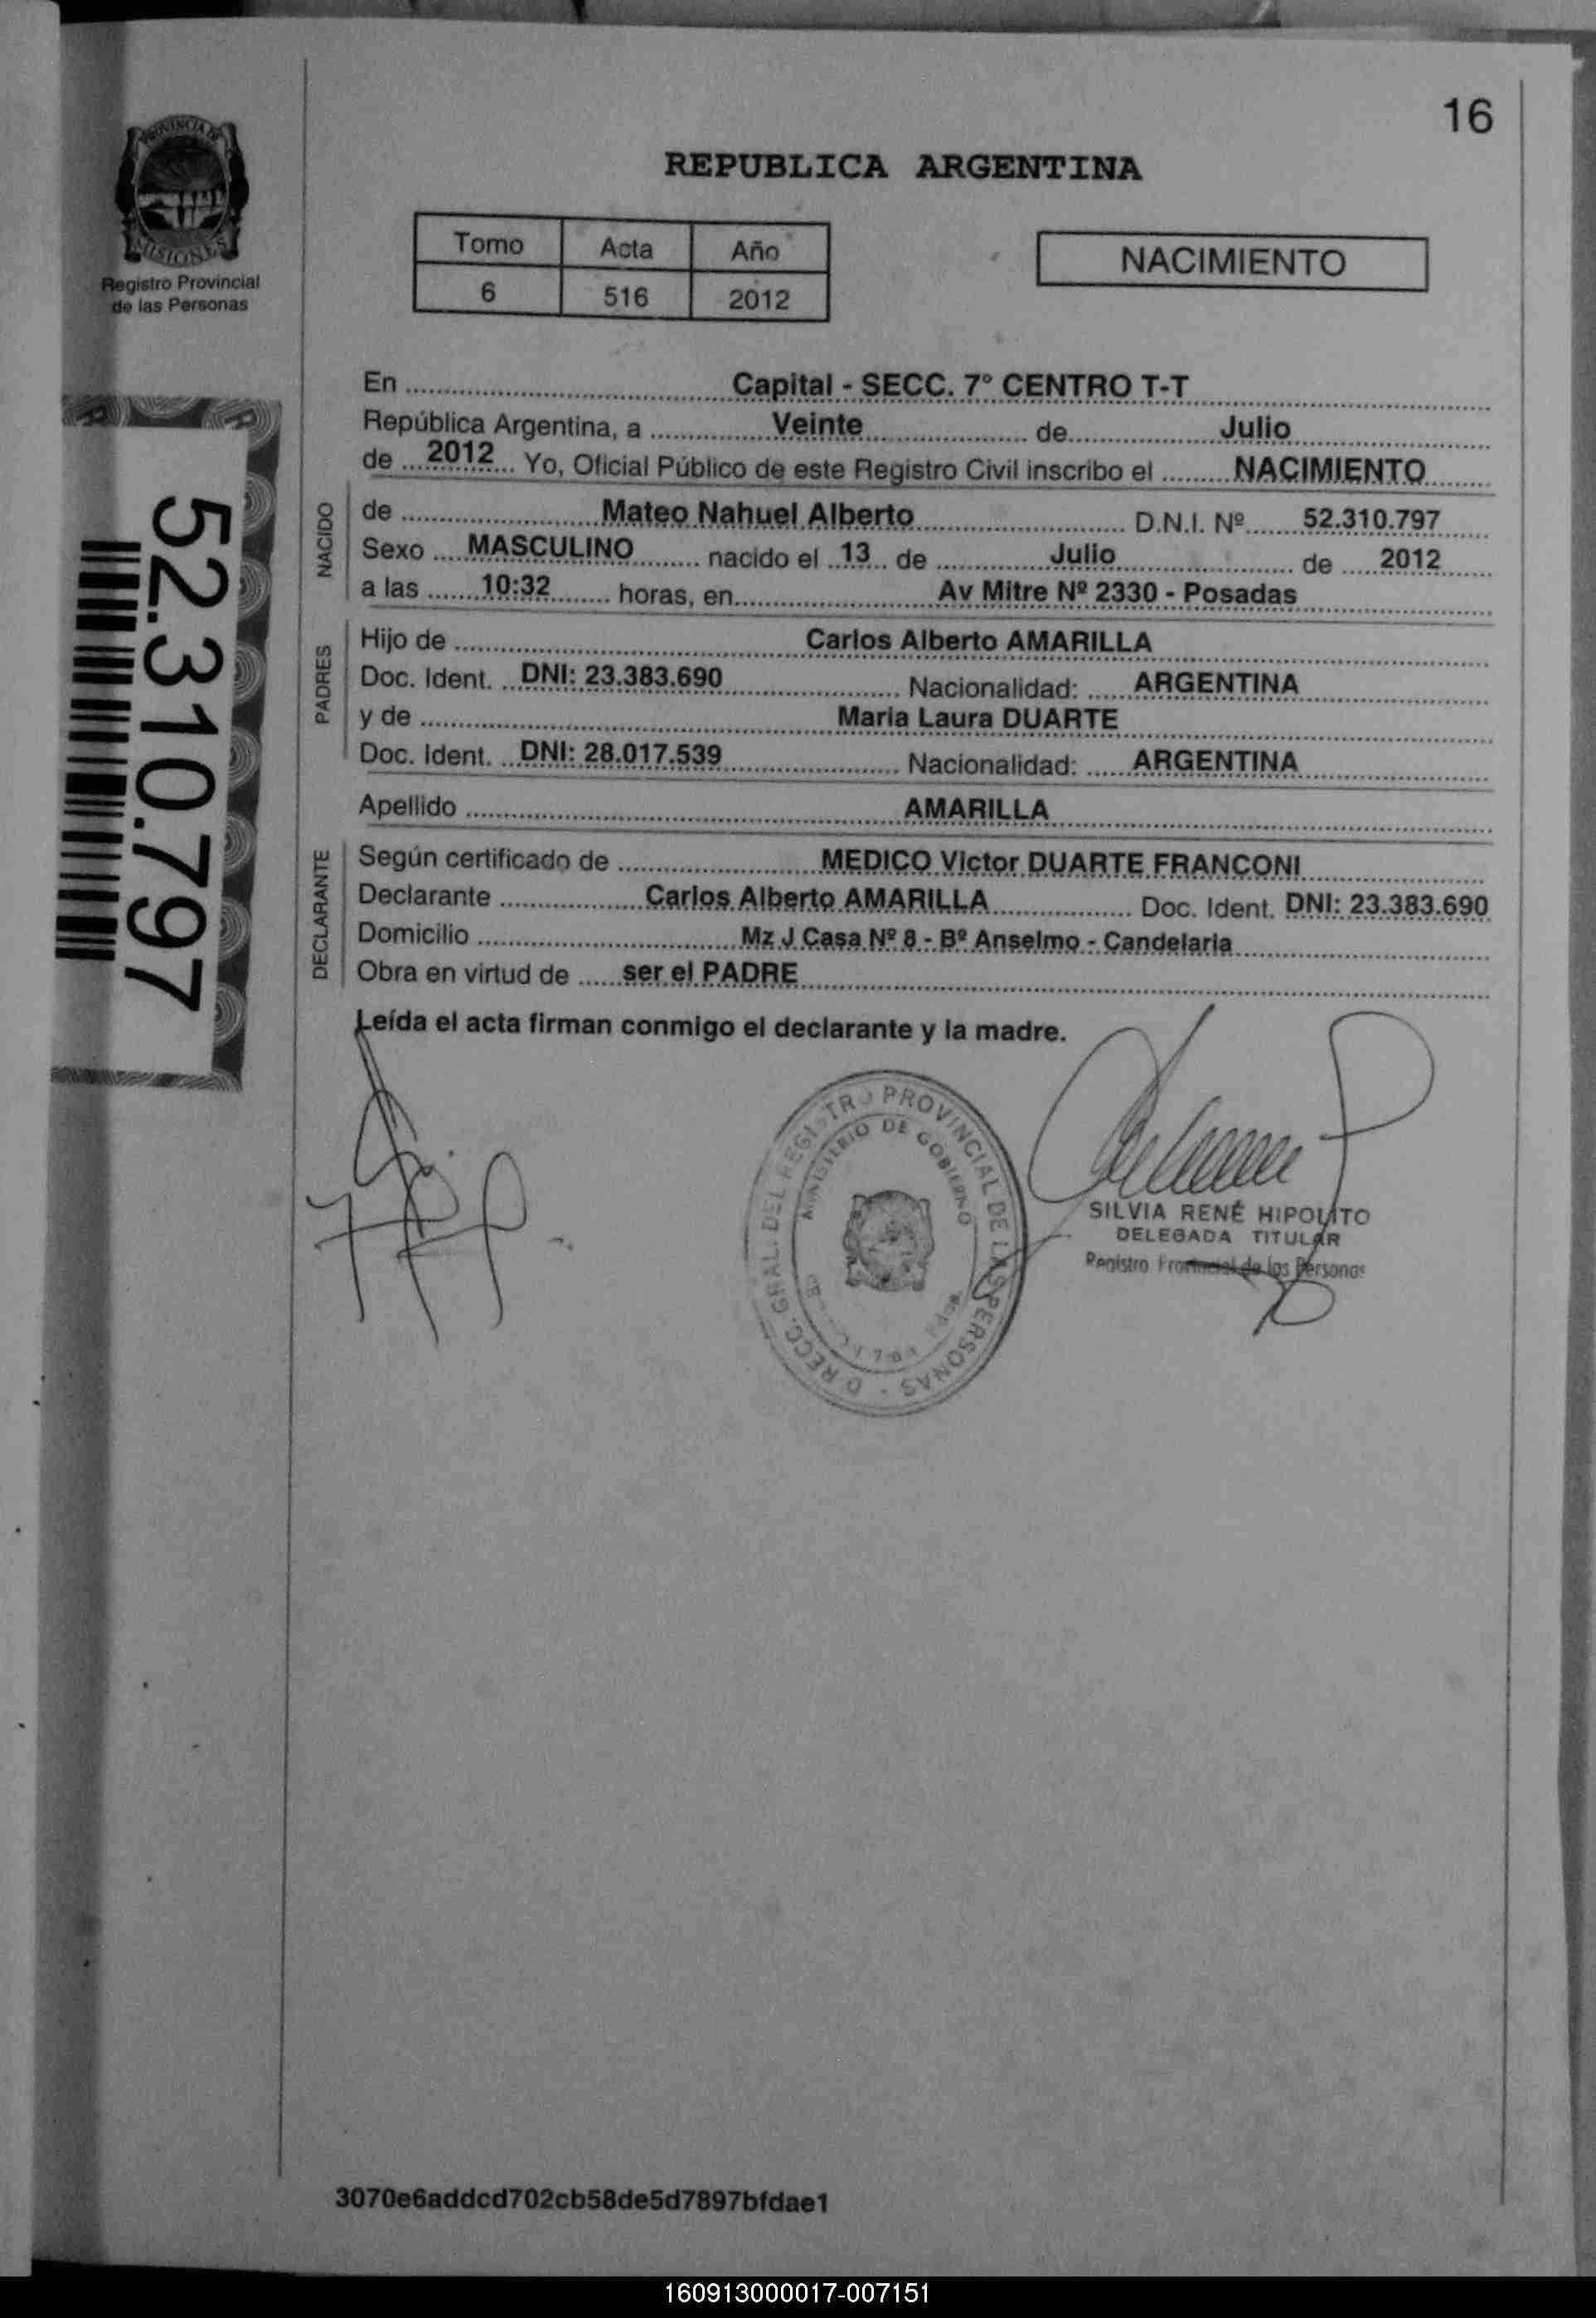 16
PROVINCIA DE
MISIONES
Registro Provincial
de las Personas
REPUBLICA ARGENTINA
Tomo Acta Año
6 516 2012
NACIMIENTO
En Capital - SECC. 7° CENTRO T-T
República Argentina, a Veinte de Julio
de 2012 Yo, Oficial Público de este Registro Civil inscribo el NACIMIENTO
NACIDO
de Mateo Nahuel Alberto D.N.I. Nº 52.310.797
Sexo MASCULINO nacido el 13 de Julio de 2012
a las 10:32 horas, en Av Mitre Nº 2330 - Posadas
PADRES
Hijo de Carlos Alberto AMARILLA
Doc. Ident. DNI: 23.383.690 Nacionalidad: ARGENTINA
y de Maria Laura DUARTE
Doc. Ident. DNI: 28.017.539 Nacionalidad: ARGENTINA
Apellido AMARILLA
DECLARANTE
Según certificado de MEDICO Victor DUARTE FRANCONI
Declarante Carlos Alberto AMARILLA Doc. Ident. DNI: 23.383.690
Domicilio Mz J Casa Nº 8 - Bº Anselmo - Candelaria
Obra en virtud de ser el PADRE
Leída el acta firman conmigo el declarante y la madre.
52.310.797
DIRECC. GRAL. DEL REGISTRO PROVINCIAL DE LAS PERSONAS
MINISTERIO DE GOBIERNO
SILVIA RENÉ HIPOLITO
DELEGADA TITULAR
Registro Provincial de las Personas
3070e6addcd702cb58de5d7897bfdae1
160913000017-007151